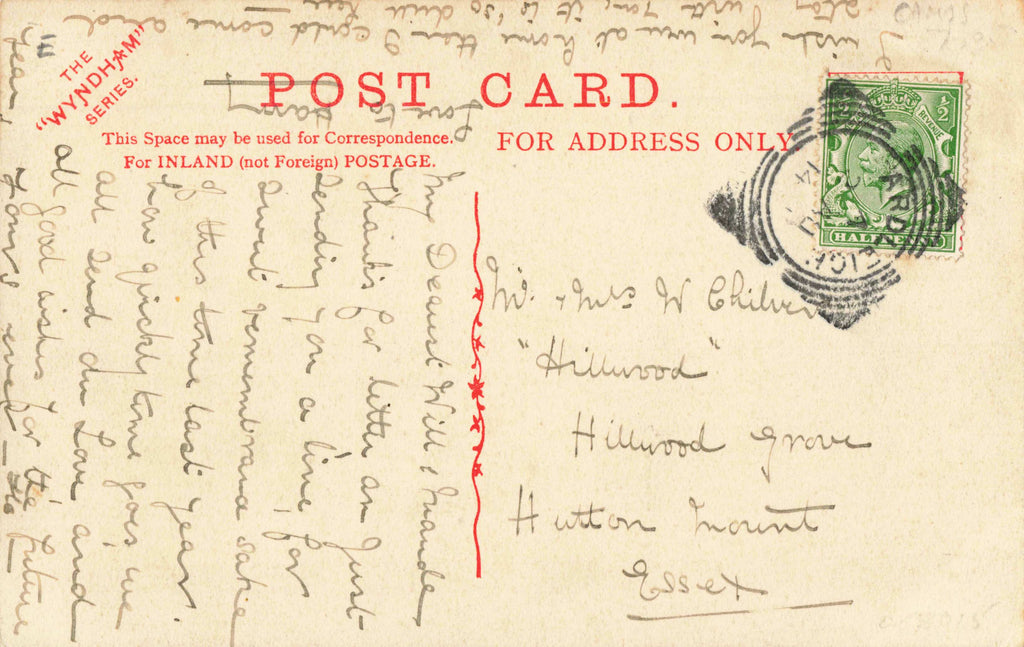 THE
"WYNDHAM"
SERIES.
POST CARD.
This Space may be used for Correspondence.
For INLAND (not Foreign) POSTAGE.
FOR ADDRESS ONLY
½
½
REVENUE
HALF
ARDLEIGH
14
Mr. & Mrs W
"Hillwood"
Hillwood Grove
Hutton Mount
Essex
My Dearest Will & Maude
Thanks for letter am just
sending you a line for
Sweet remembrance sake
of this time last year.
How quickly time goes, we
all send du Love and
all good wishes for the future
Yours ever
I wish you were at home then I could come and
stay with you, it is so dull here
Love to